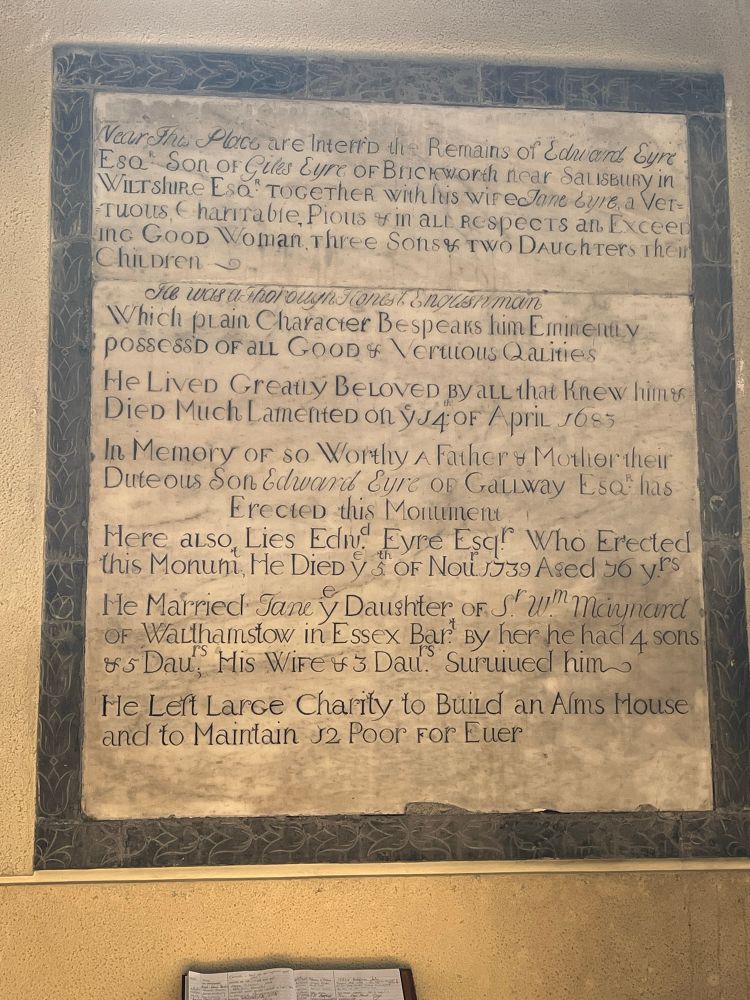 Near This Place are Interr'd the Remains of Edward Eyre
Esq.r Son of Giles Eyre of Brickworth near Salisbury in
Wiltshire Esq.r together with his wife Jane Eyre, a Ver-
-tuous, Charitable, Pious & in all respects an Exceed
ing Good Woman, three Sons & two Daughters their
Children
He was a thorough Honest Englishman
Which plain Character Bespeaks him Eminently
possess'd of all Good & Vertuous Qalities
He Lived Greatly Beloved by all that Knew him &
Died Much Lamented on ye 14th of April 1683
In Memory of so Worthy a Father & Mother their
Duteous Son Edward Eyre of Gallway Esq.r has
Erected this Monument
Here also Lies Edw.d Eyre Esq.r Who Erected
this Monum.t, He Died ye 5th of Nou.r 1739 Aged 76 y.rs
He Married Jane ye Daughter of S.r W.m Maynard
of Walthamstow in Essex Bar.t by her he had 4 sons
& 5 Dau.rs, His Wife & 3 Dau.rs Suruiued him
He Left Large Charity to Build an Alms House
and to Maintain 12 Poor for Euer